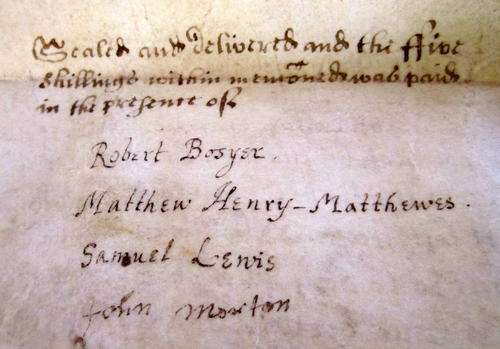 Sealed and delivered and the ffive
shillings within menconed was paid
in the presence of
Robert Bosyer.
Matthew Henry-Matthewes.
Samuel Lewis
John Morton